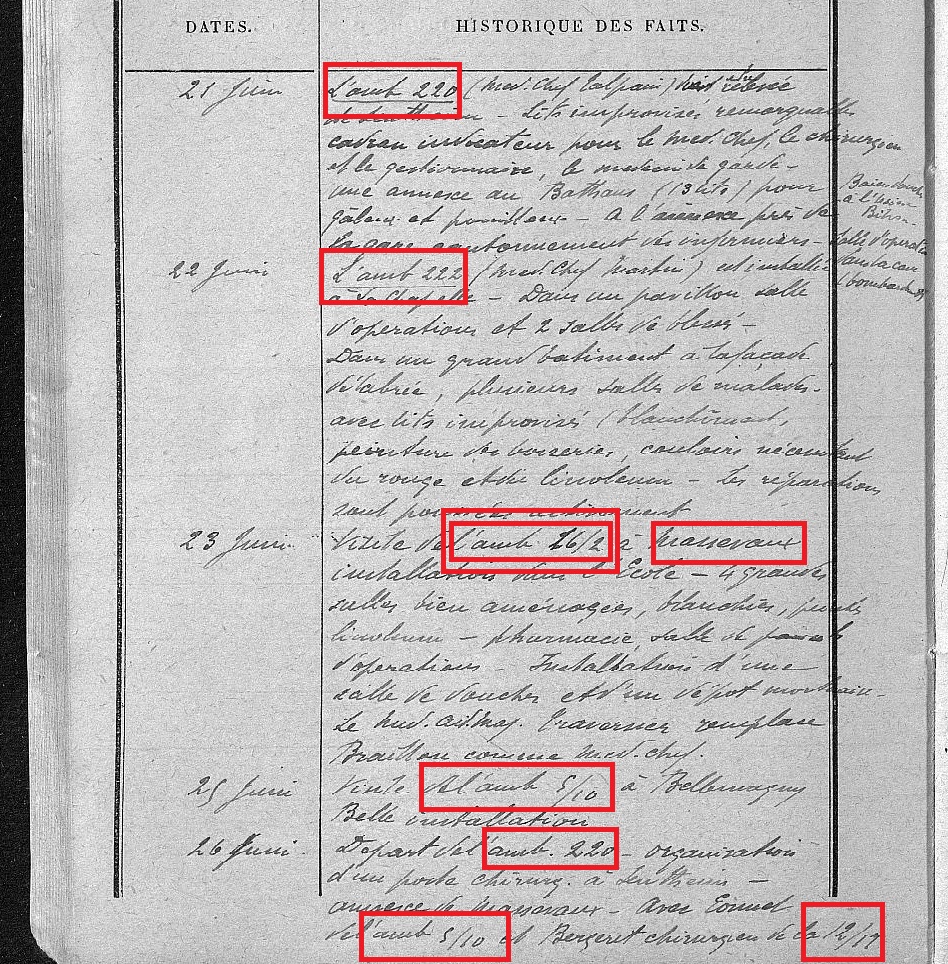 DATES.
HISTORIQUE DES FAITS.
21 Juin
L'amb 220 (med. Chef Talpain) relevée
de Sentheim - Lits improvisés remorquable
cadran indicateur pour le med. Chef, le chirurgien
et le gestionnaire, le medecin de garde -
une annexe au Bathaus (13 lits) pour
galeux et pouilleux - A l'annexe près de
la gare cantonnement des infirmiers -
à l'usine
Salle d'operation
dans la cave
22 Juin
L'amb 222 (med. Chef Martin) est installée
à La Chapelle - Dans un pavillon salle
d'operations et 2 salles de blessés -
Dans un grand batiment à la façade
délabrée, plusieurs salles de malades -
avec lits improvisés (blanchiment,
peinture des boiseries, couloirs nécessitant
du rouge et du linoleum - Les réparations
sont poussées activement
23 Juin
Visite de l'amb 16/2 à Massevaux
installation dans l'Ecole - 4 grandes
salles bien aménagées, blanchies, peintes
linoleum - pharmacie, salle de
d'operations - Installation d'une
salle de douches et d'un dépôt mortuaire -
Le med. aid. maj. Traversier remplace
Braillon comme med. chef.
25 Juin
Visite de l'amb 5/10 à Bellemagny
Belle installation
26 Juin
Depart de l'amb. 220 - organisation
d'un poste chirurg. à Sentheim -
annexe de Massevaux - Avec
de l'amb 5/10 et Bergeret chirurgien de la 12/17